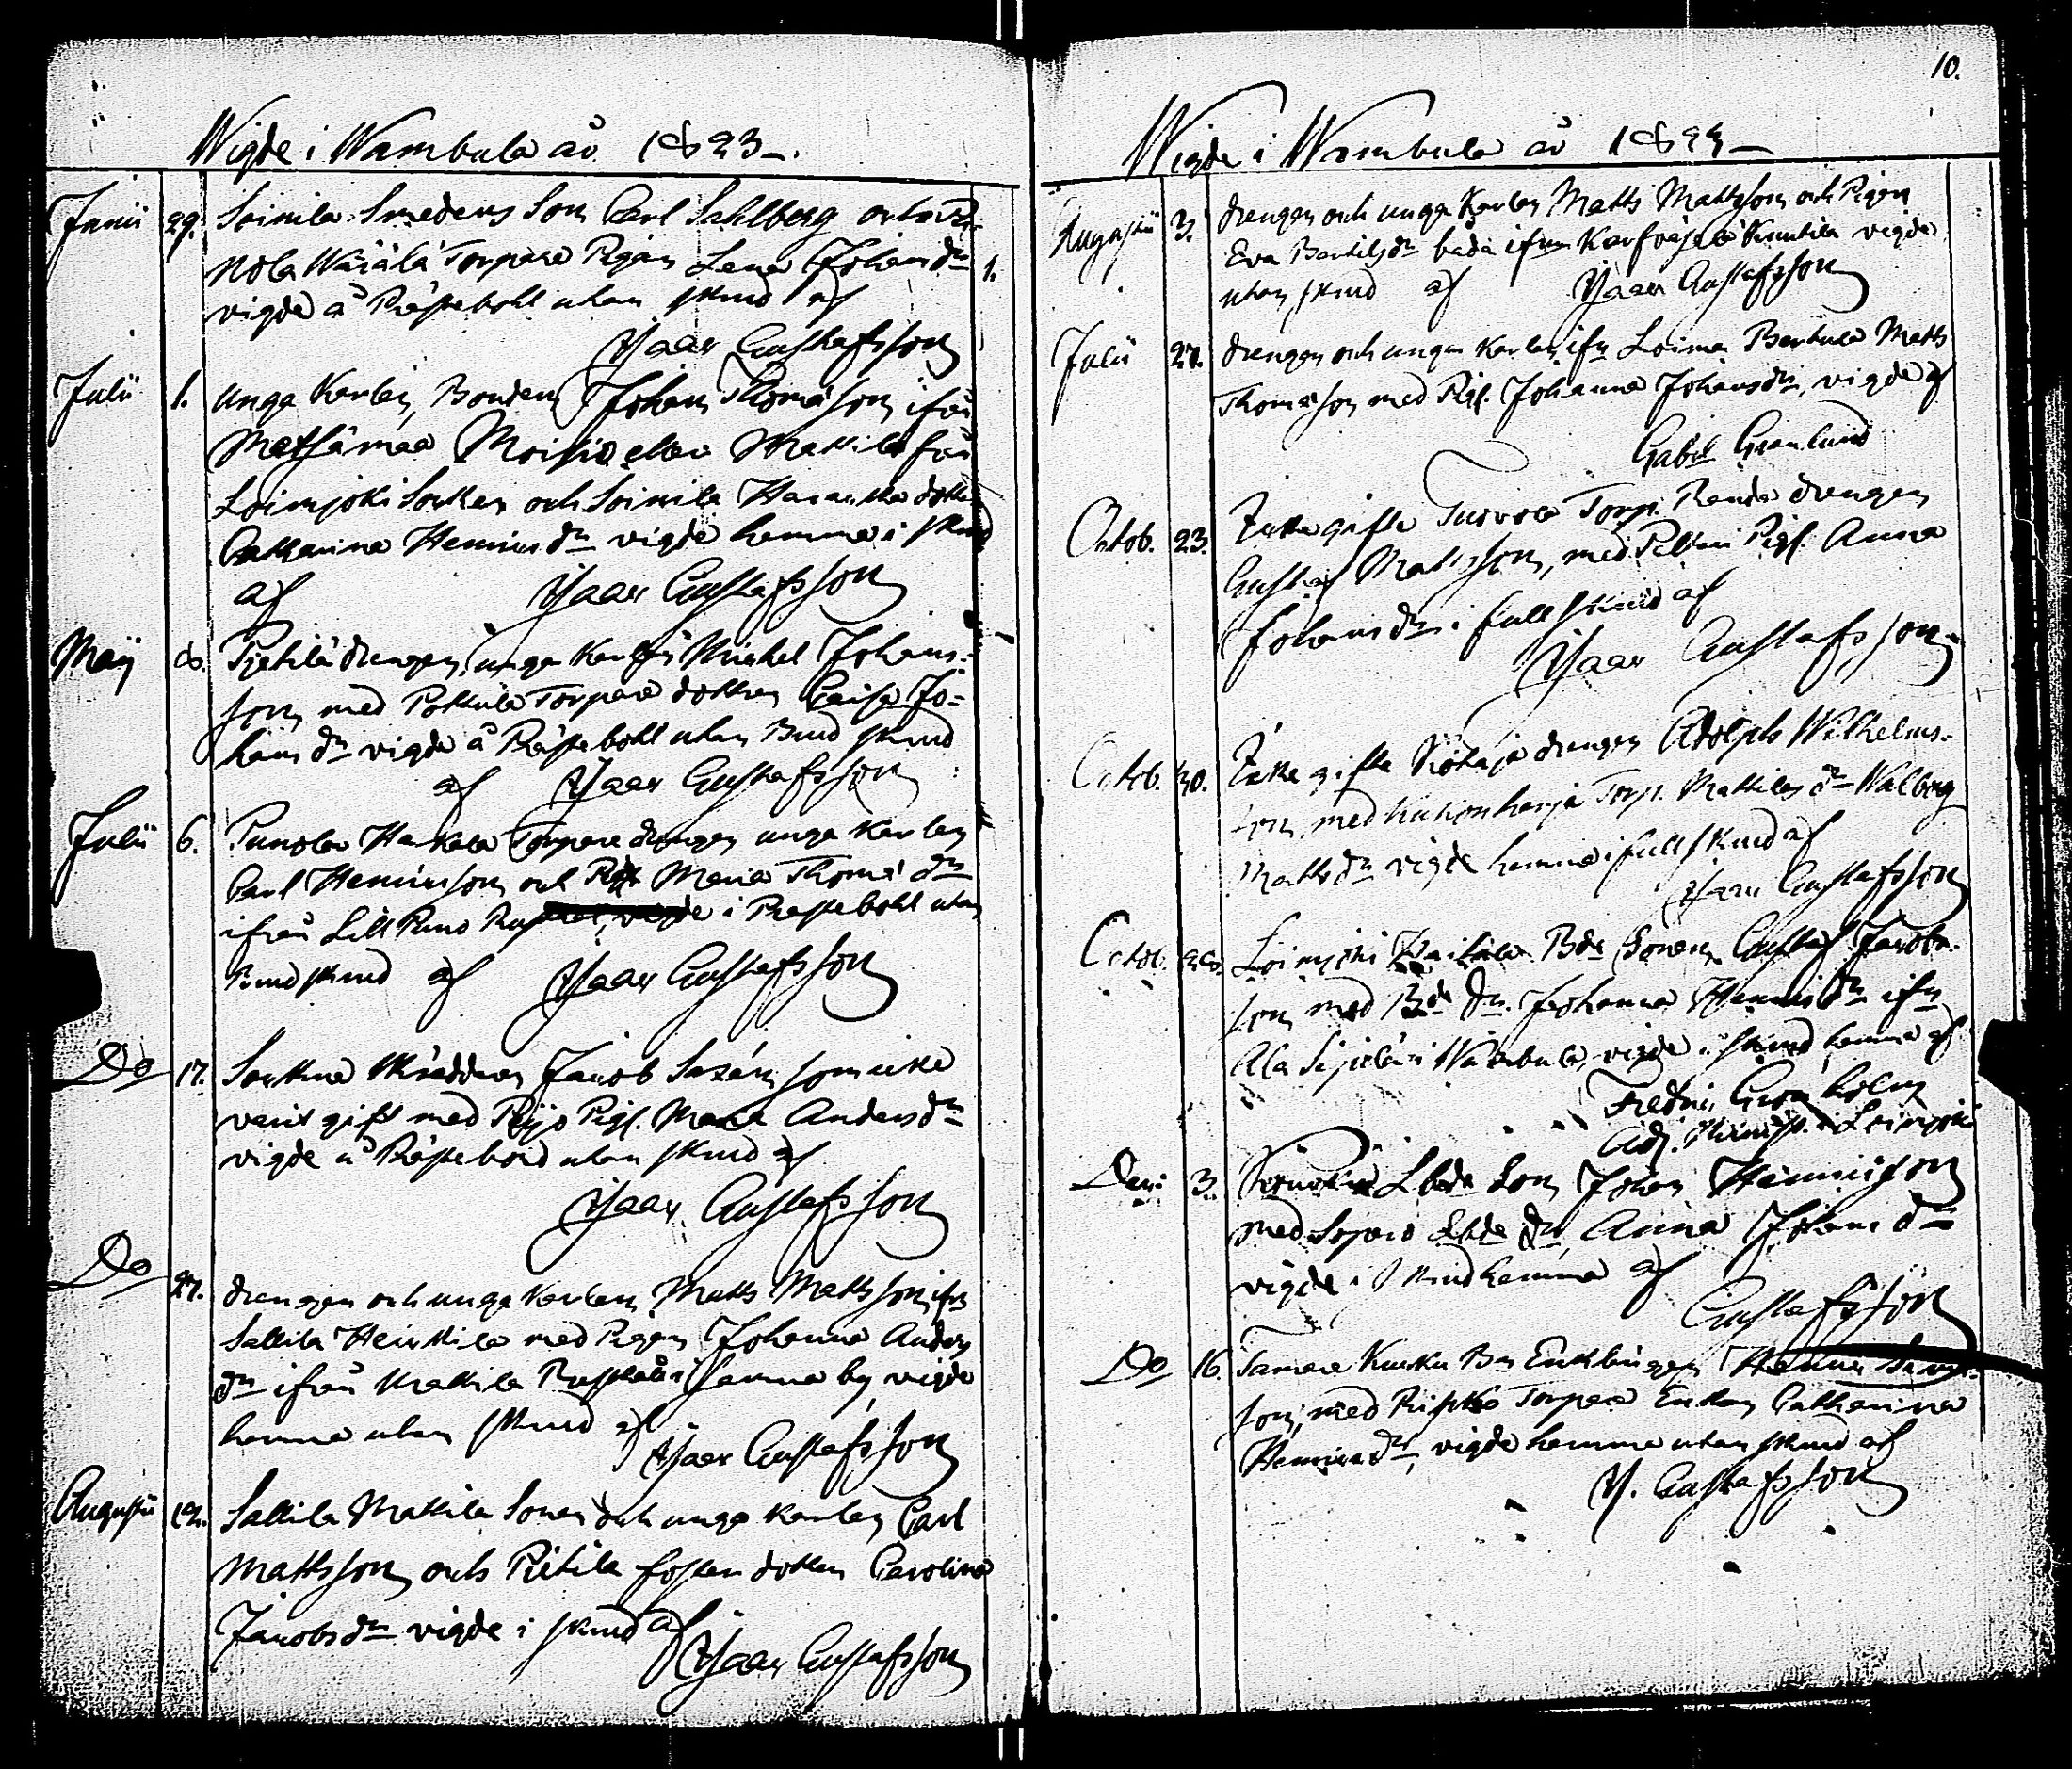 Wigde i Wambula år 1823.
Junii 29. Soinila Smedens Son Carl Sahlberg och
Nola Wärälä Torpare Pigan Lena Johans dr 1.
vigde å Prästebohl utan skrud af
Isaac Gustafsson
Julii 1. Unga Karlen, Bonden Johan Thomasson ifrån
Metsämaa Moisio eller Mattila från
Loimjoki Socken och Soinila Haranka dotter
Catharina Henrics dr vigde hemma i skrud
af Isaac Gustafsson
Maji 8. drengen, unga Karlen Michel Johans-
son med Pokkula Torpare dottren Caisa Jo-
hans dr vigde å Prästebohl utan Brud skrud
af Isaac Gustafsson
Julii 6. Punola Harkala Torpare drengen unga Karlen
Carl Henricsson och Maria Thomæ dr
ifrån Lill Puno i Prestebohl utan
Brudskrud af Isaac Gustafsson
Do 17. Sockne Skräddaren Jacob Saxén som icke
varit gift med Pigs. Maria Anders dr
vigde å Prästebord utan skrud af
Isaac Gustafsson
Do 27. drengen och unga Karlen Matts Mattsson ifrn
Sallila Heikkilä med Pigan Johanna Anders
dr ifrån Mattila i samma by vigde
hemma utan skrud af Isaac Gustafsson
Augusti Sallila Mattila Sonen och unga Karlen Carl
Mattsson och Pitilä foster dottern Carolina
Jacobs dr vigde i skrud af
Isaac Gustafsson
10.
Wigde i Wambula år 1823
Augusti 3. drengen och unga Karlen Matts Mattsson och Pigan
Eva Bertils dr båda ifrån Knutila vigde
utan skrud af Isaac Gustafsson
Julii 27. drengen och unga Karlen, ifrn Loima Matts
Thomasson med Pigs. Johanna Johans dr, vigde af
Gabr. Granlund
Octob. 23. Enke gifte Torp. drengen
Gustaf Mattsson, med Pigs. Anna
Johans dr i full skrud af
Isaac Gustafsson
Octob. 30. Icke gifte drengen Adolph Wilhelms-
son, med Torp. Mattilas dr Walborg
Matts dr vigde hemma i full skrud af
Isaac Gustafsson
Octob. Loimjoki Bde Sonen Gustaf Jacobs-
son med Bde dr. Johanna Henrics dr ifrn
Ala i Wambula, vigde i skrud hemma af
Fredric Grönholm
Adj. i Loimjoki
Dec. 3. Son Johan Henricsson
med dr Anna Johans dr
vigde i skrud hemma af
Gustafsson
Do 16. Kurku Enklingen
son, med Torpare Enkan Catharina
Henrics dr, vigde hemma utan skrud af
I. Gustafsson